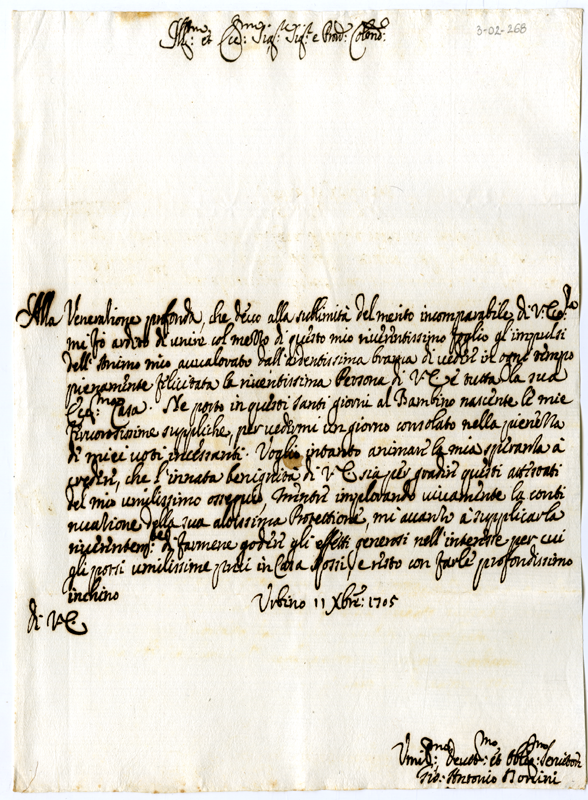 Ill:mo et Ecc:mo Sig:r Sig:r e Pad:e Colend:o
3-02-268
Alla Veneratione profonda, che devo alla sublimità del merito incomparabile di V: Ecc:za
mi fò ardito di unire col mezzo di questo mio riverentissimo foglio gl'impulsi
dell'Animo mio avvalorato dall'ardentissima brama di vedere in ogni tempo
pienamente felicitata la riverentissima Persona di V: E: e tutta la sua
Ecc:ma Casa. Ne porto in questi santi giorni al Bambino nascente le mie
ferventissime suppliche, per vedermi un giorno consolato nella pienezza
di miei voti incessanti. Voglio intanto animare la mia speranza à
credere, che l'innata benignità di V: E: sia per gradire questi attestati
del mio umilissimo ossequio, mentre implorando vivamente la conti
nuatione della sua altissima Protectione, mi avanzo à supplicarla
riverentem:te di farmene godere gli effetti generosi nell'interesse per cui
gli porsi umilissime preci in Casa Rossi, e resto con farle profondissimo
inchino
Urbino 11 Xbre: 1705
di V: E:
Umil:mo Devot:mo et Oblig:mo Servitore
Gio: Antonio